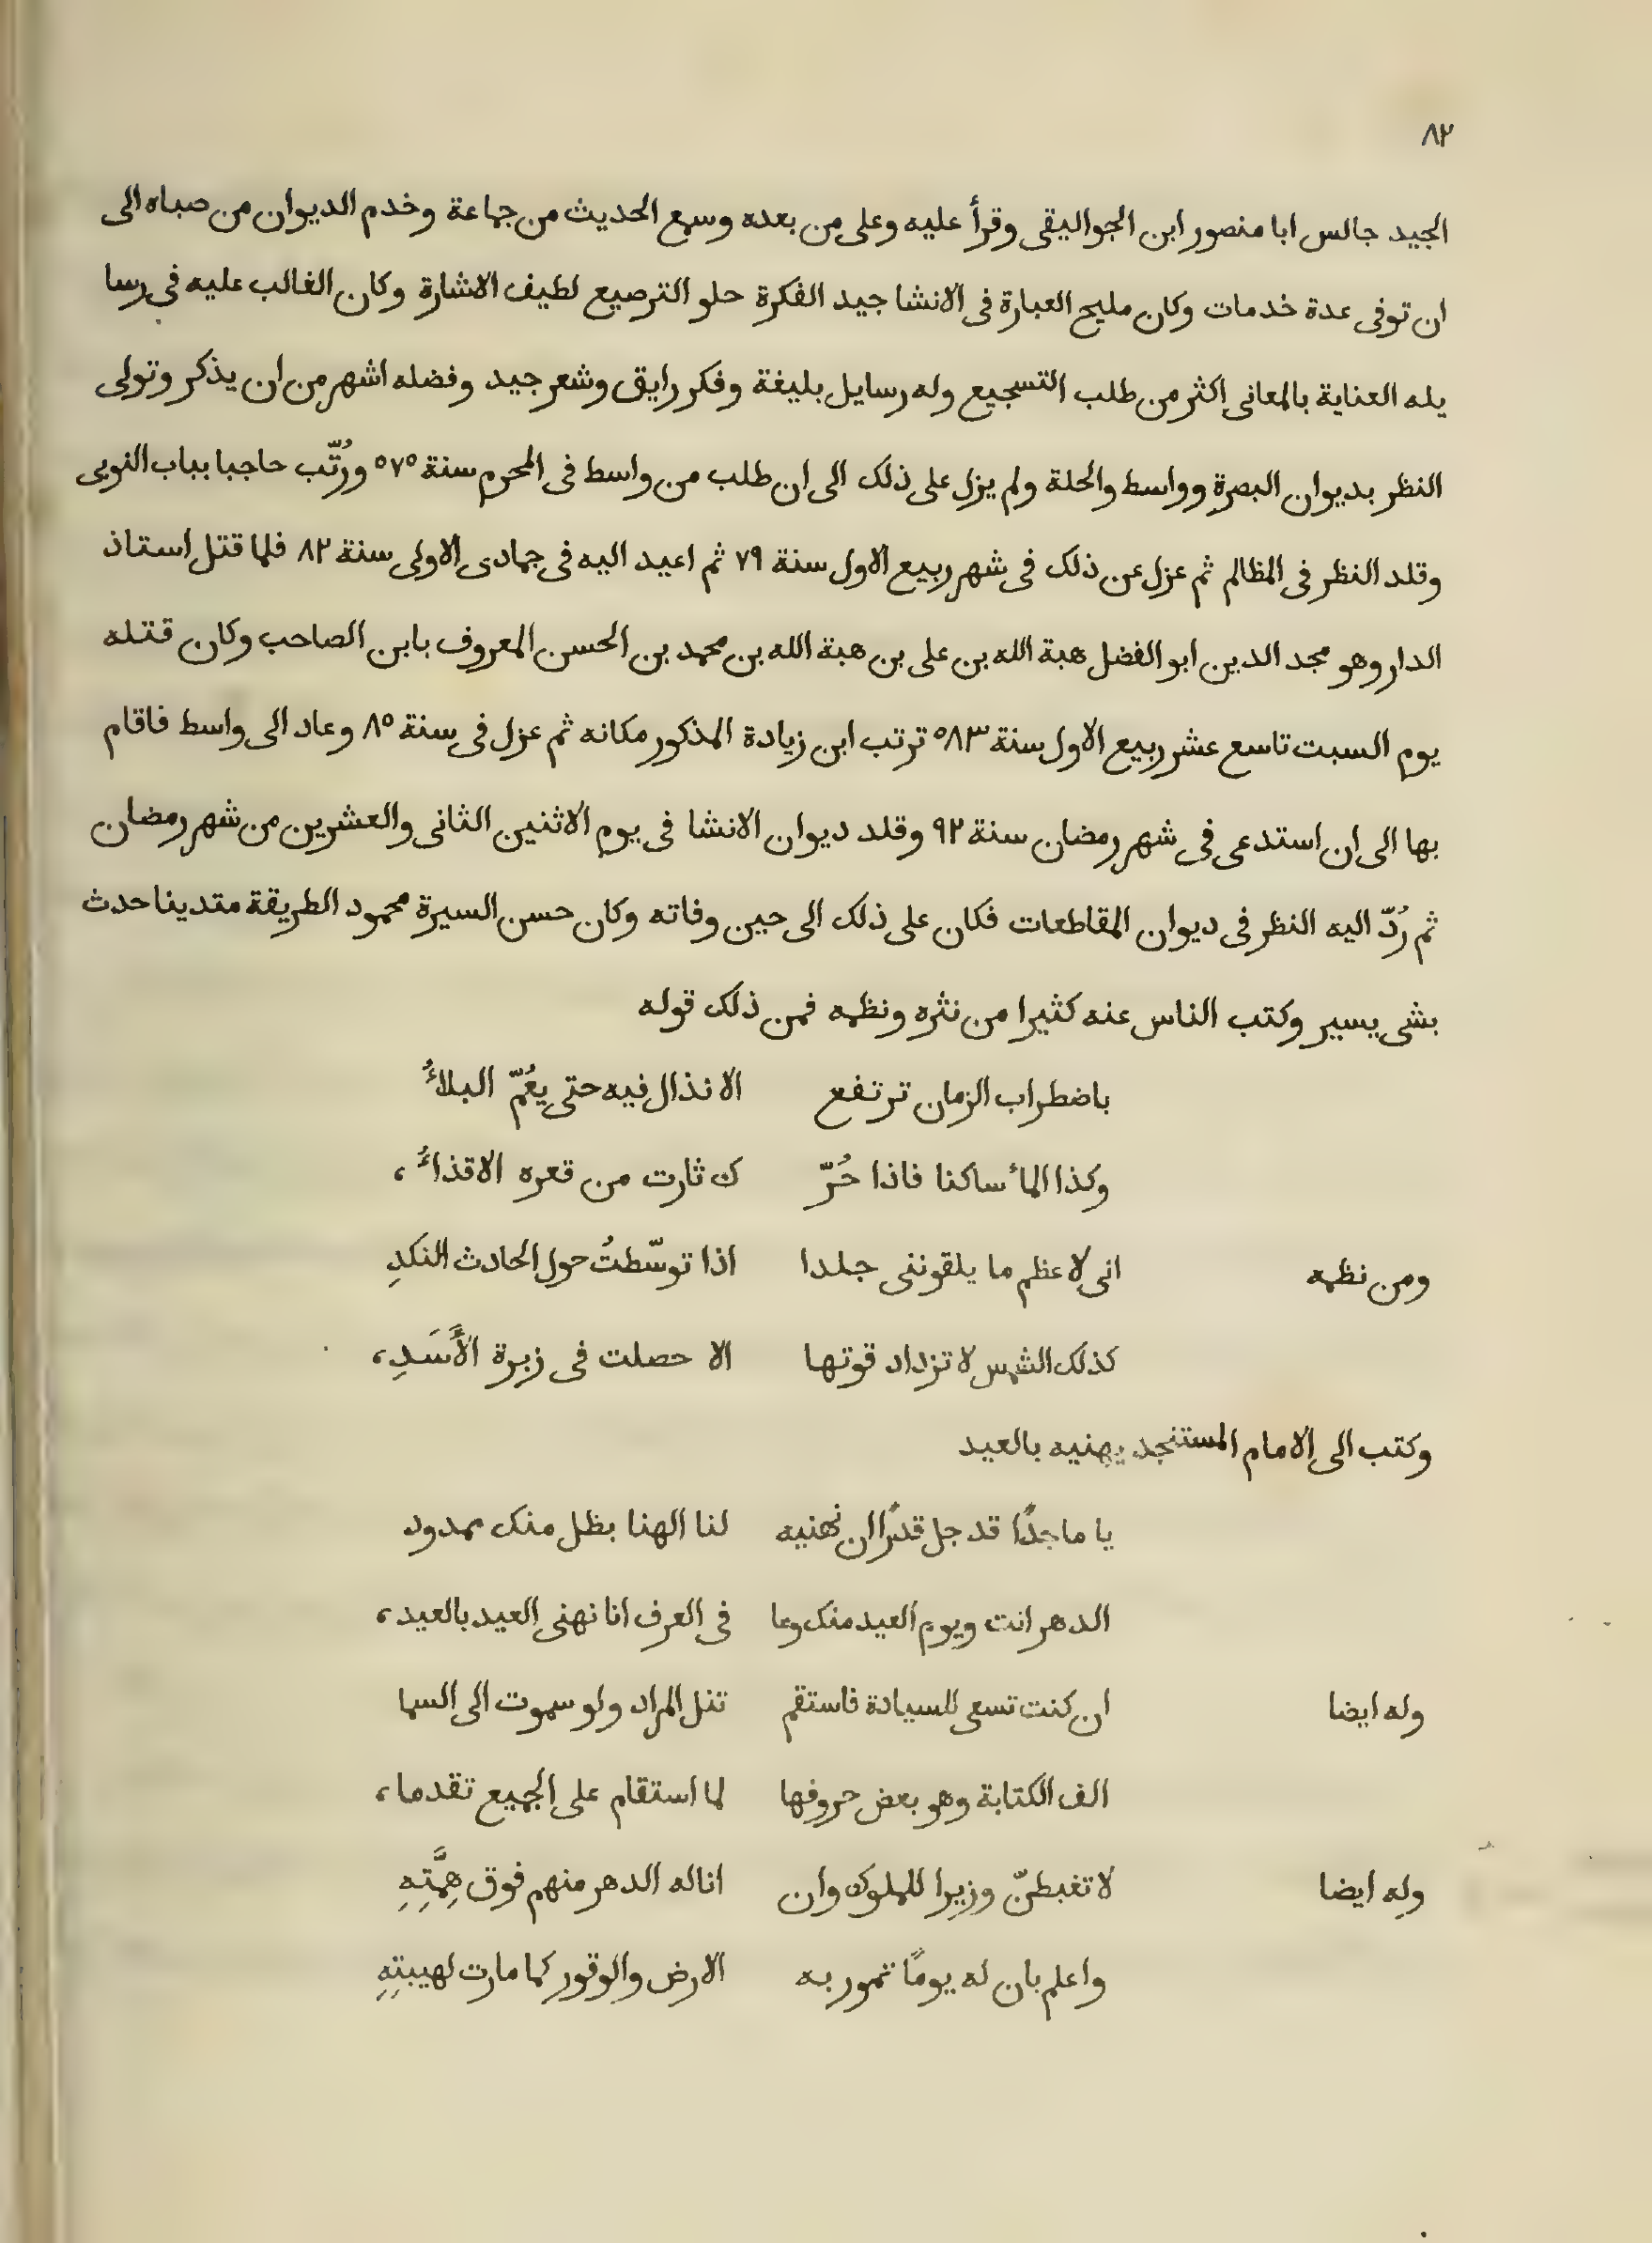 ٨٢
الجيد جالس ابا منصور ابن الجواليقى وقرأ عليه وعلى من بعده وسمع الحديث من جماعة وخدم الديوان من صباه الى
ان توفى عدة خدمات وكان مليح العبارة فى الانشا جيد الفكرة حلو الترصيع لطيف الاشارة وكان الغالب عليه فى رسا
يله العناية بالمعانى اكثر من طلب التسجيع وله رسايل بليغة وفكر رايق وشعر جيد وفضله اشهر من ان يذكر وتولى
النظر بديوان البصرة وواسط والحلة ولم يزل على ذلك الى ان طلب من واسط فى المحرم سنة ٥٧٥ ورُتّب حاجبا بباب النوبى
وقلد النظر فى المظالم ثم عزل عن ذلك فى شهر ربيع الاول سنة ٧٩ ثم اعيد اليه فى جمادى الاولى سنة ٨٢ فلما قتل استاذ
الدار وهو مجد الدين ابو الفضل هبة الله بن على بن هبة الله بن محمد بن الحسن المعروف بابن الصاحب وكان قتله
يوم السبت تاسع عشر ربيع الاول سنة ٥٨٣ ترتب ابن زيادة المذكور مكانه ثم عزل فى سنة ٨٥ وعاد الى واسط فاقام
بها الى ان استدعى فى شهر رمضان سنة ٩٢ وقلد ديوان الانشا فى يوم الاثنين الثانى والعشرين من شهر رمضان
ثم رُدّ اليه النظر فى ديوان المقاطعات فكان على ذلك الى حين وفاته وكان حسن السيرة محمود الطريقة متدينا حدث
بشى يسير وكتب الناس عنه كثيرا من نثره ونظمه فمن ذلك قوله
باضطراب الزمان ترتفع الانذال فيه حتى يعُمّ البلاءُ
وكذا الماء ساكنا فاذا حُرّ ك ثارت من قعره الاقذاءُ ،
ومن نظمه انى لاعظم ما يلقوننى جلدا اذا توسّطتُ حول الحادث النكدِ
كذلك الشمس لا تزداد قوتها الا حصلت فى زبرة الأَسَدِ ،
وكتب الى الامام المستنجد يهنيه بالعيد
يا ماجدًا قد جل قدرًا ان نهنيه لنا الهنا بظل منك ممدود
الدهر انت ويوم العيد منك وما فى العرف انا نهنى العيد بالعيد ،
وله ايضا ان كنت تسعى للسيادة فاستقم تنل المراد ولو سموت الى السما
الف الكتابة وهو بعض حروفها لما استقام على الجميع تقدما ،
وله ايضا لا تغبطنّ وزيرا للملوك وان اناله الدهر منهم فوق هِمَّتِهِ
واعلم بان له يومًا تمور به الارض والوقور كما مارت لهيبتِهِ